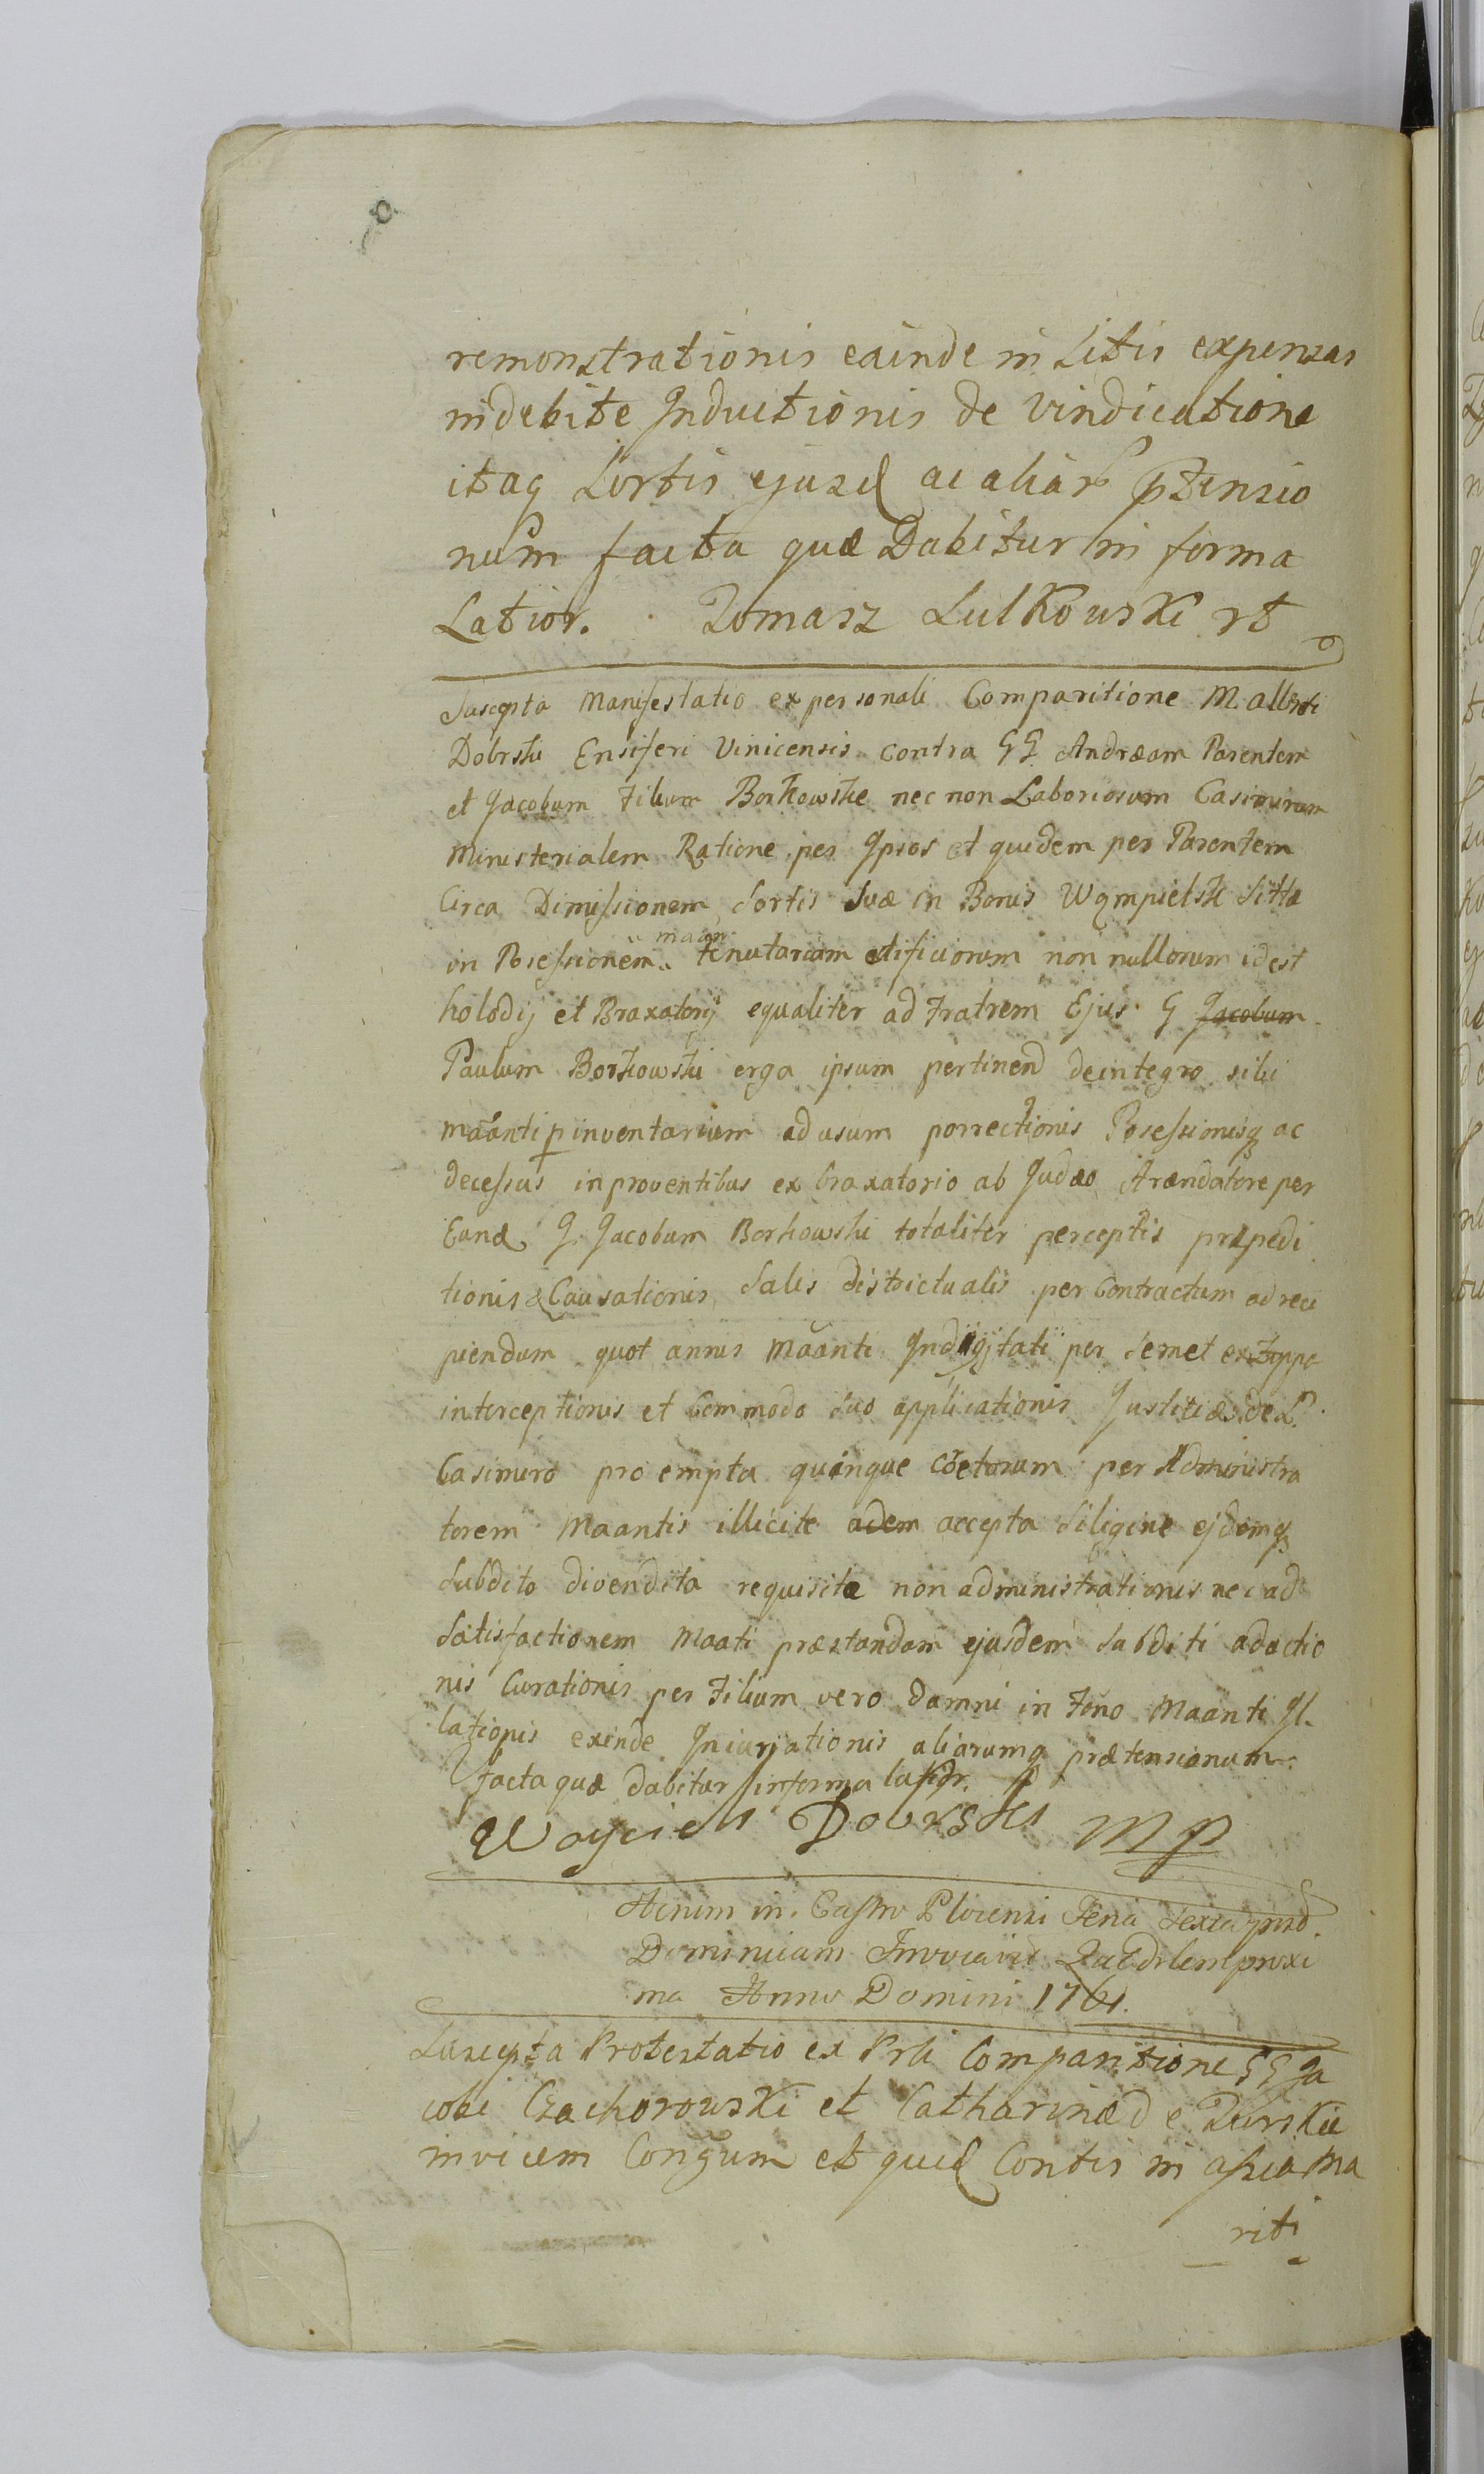 remonstrationis eainde in Litis expensas
indebite Inductionis de vindicatione
itaq Sortis ejusd ac aliar ptensio
num facta quæ Dabitur in forma
Latior. Tomasz Lulkowski rt
Suscepta Manifestatio ex personali Comparitione M. alberti
Dobrski Ensiferi Vinicensis contra GG. Andræam Parentem
et Jacobum Filium Borkowskie nec non Laboriosum Casimirum
Ministerialem Ratione per Ipsos et quidem per Parentem
Circa Dimissionem Sortis Suæ in Bonis Wąmpielsk Sittæ
in Possessionem maan tenutariam edificiorum non nullorum idest
holodij et Braxatorij equaliter ad Fratrem Ejus G Jacobum
Paulum Borkowski erga ipsum pertinend deintegro sibi
maanti p inventarium ad usum porrectionis Possessionisq ac
decessus in proventibus ex braxatorio ab Judæo Arændatore per
Eund G. Jacobum Borkowski totaliter perceptis præpedi
tionis & Causationis Salis districtualis per Contractum ad reci
piendum quot annis Maanti per Semet
interceptionis et Commodo Suo applicationis Justitiæ de L.
Casimiro pro empta quinque coretorum per Administra
torem Maantis illicite adem accepta Siligine ejdemq
Subdito divendita requisitæ non administrationis nec ad
Satisfactionem Maati præstandam ejusdem Subditi adactio
nis Curationis per Filium vero Damni in Feno Maanti Il
lationis exinde Iniuriationis aliarumq prætensionum
facta quæ dabitur in forma latior.
Woyciech Dobrski mp
Actum in Castro Plocensi Feria Sexta post
Dominicam Invocavit Quadrlem proxi
ma Anno Domini 1761.
Suscepta Protestatio ex Prli Comparitione GG Ja
cobi Czachorowski et Catharinæ de Turskie
invicem Congum et quid Contis in assia Ma
riti